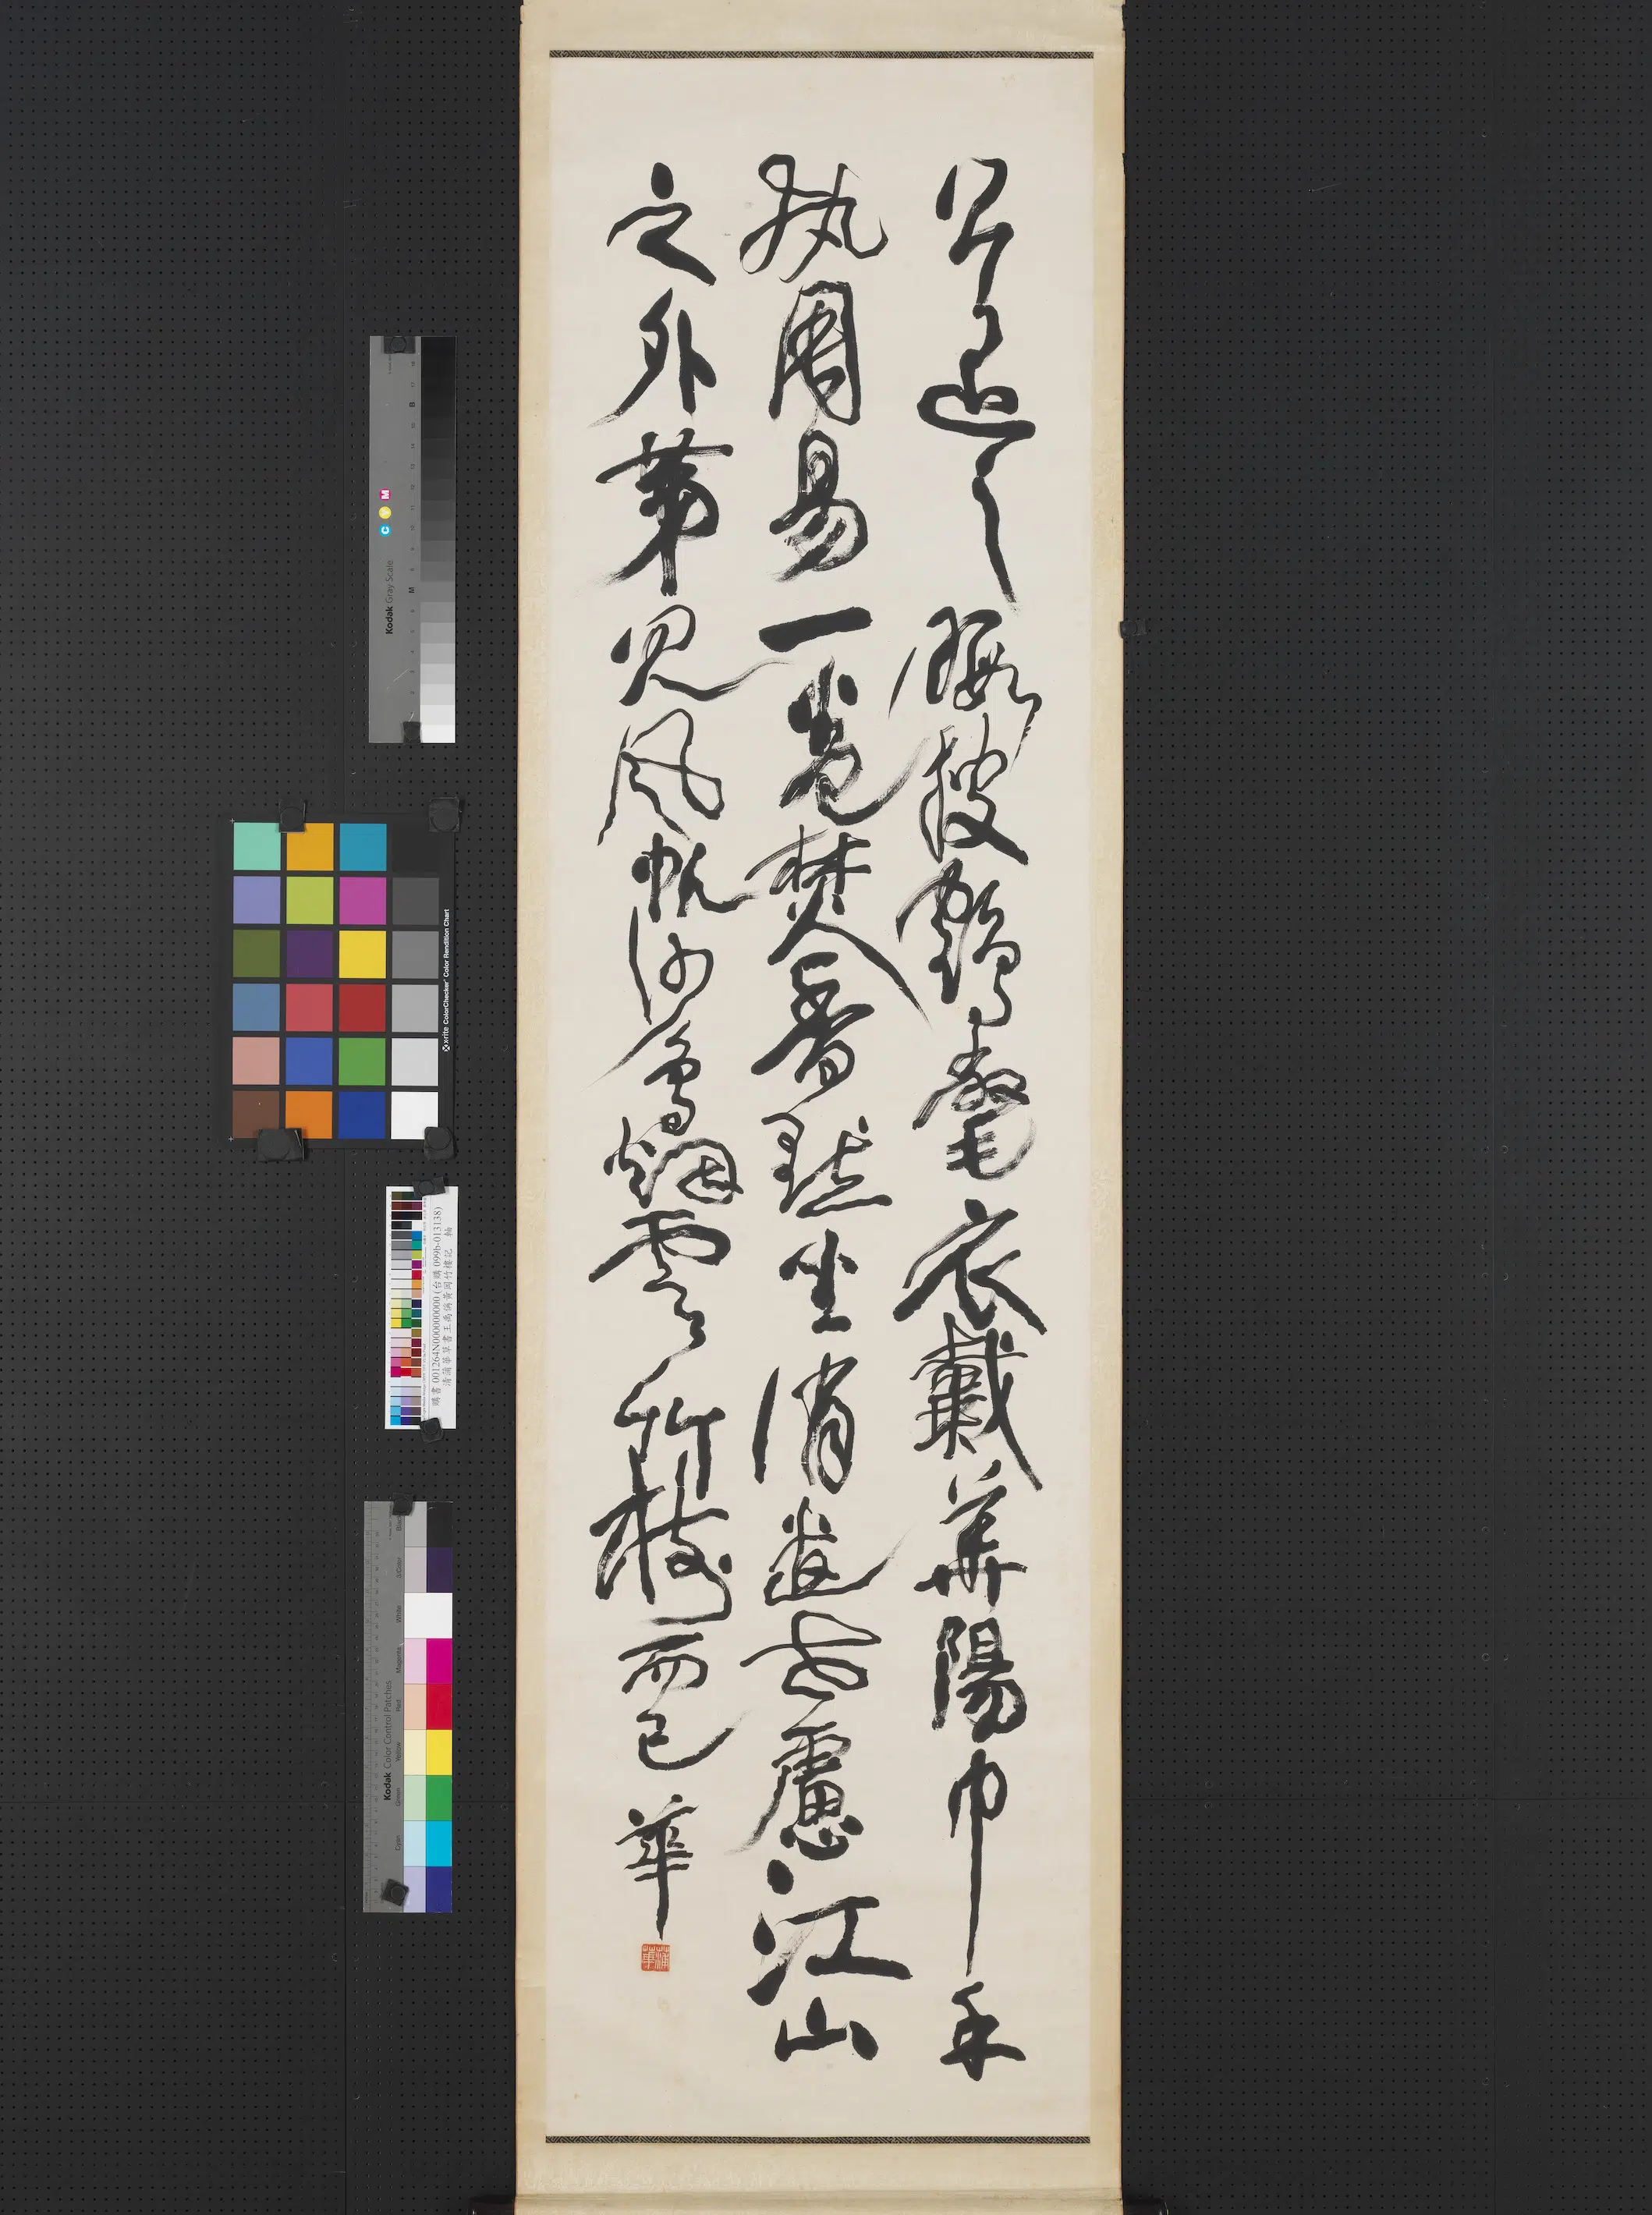 公退之暇披鶴氅衣戴華陽巾手
執周易一卷焚香默坐消遣世慮江山
之外第見風帆沙鳥烟雲竹樹而已 華
蒲華
Kodak Gray Scale
C Y M
x-rite ColorChecker Color Rendition Chart
清蒲華草書王禹偁黃岡竹樓記 軸
Kodak Color Control Patches
Black
3/Color
White
Magenta
Red
Yellow
Green
Cyan